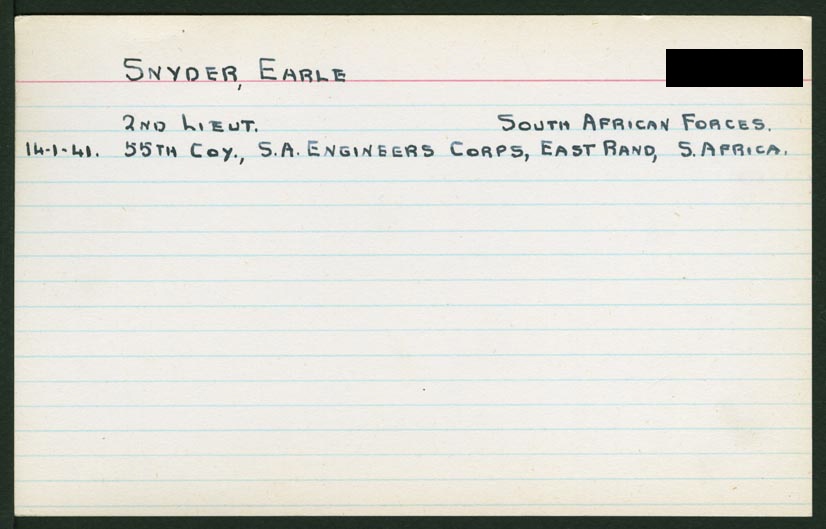 SNYDER, EARLE
2ND LIEUT. SOUTH AFRICAN FORCES.
14-1-41. 55TH COY., S.A. ENGINEERS CORPS, EAST RAND, S. AFRICA.